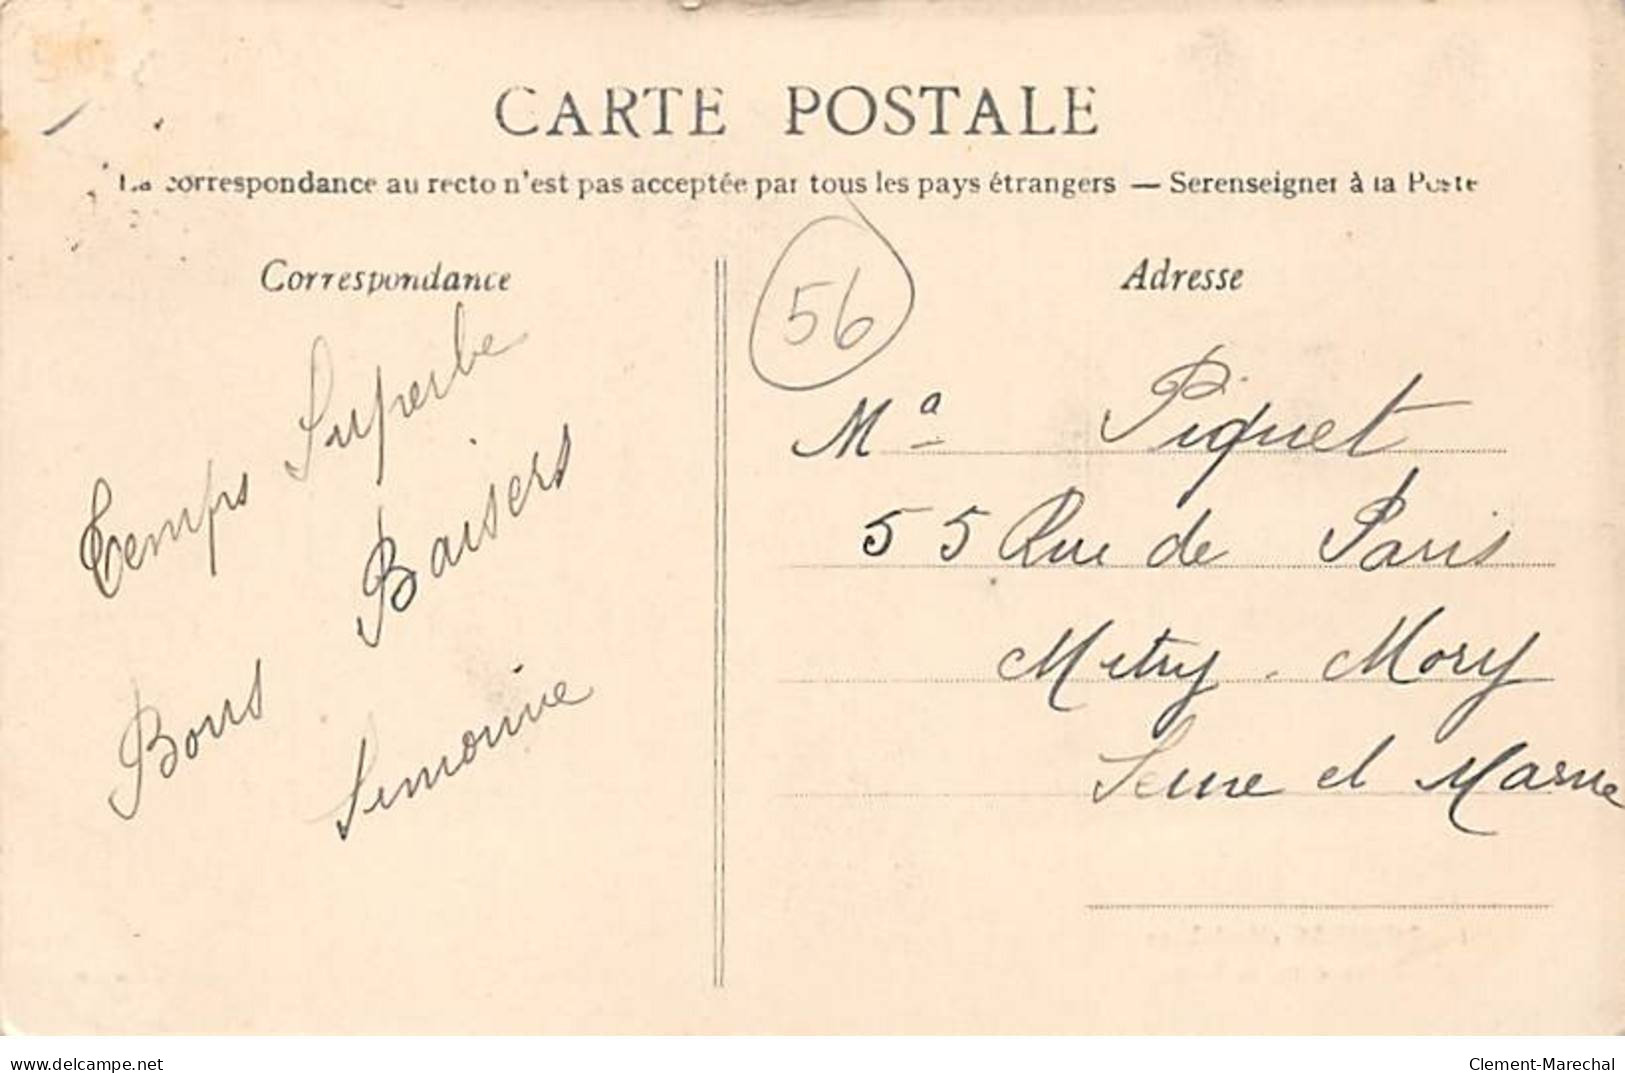 CARTE POSTALE
La correspondance au recto n'est pas acceptée par tous les pays étrangers — Se renseigner à la Poste
Correspondance
Temps Superbe
Bons Baisers
Simonne
56
Adresse
Ma Piquet
55 Rue de Paris
Mitry. Mory
Seine et Marne
www.delcampe.net
Clement-Marechal